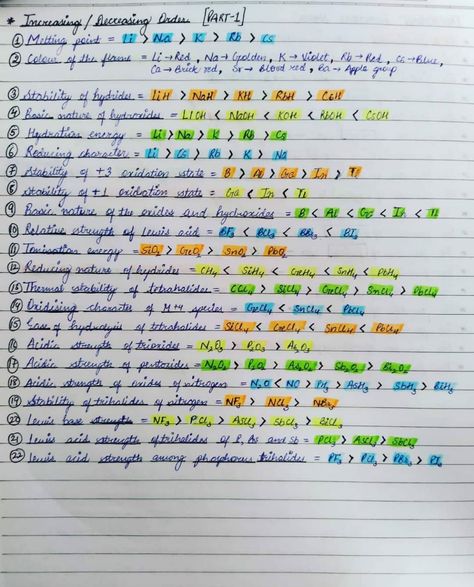 * Increasing/Decreasing Order [PART-1]
① Melting point = Li > Na > K > Rb > Cs
② Colour of the flame = Li → Red, Na → Golden, K → Violet, Rb → Red, Cs → Blue,
Ca → Brick red, Sr → Blood red, Ba → Apple group
③ Stability of hydrides = LiH > NaH > KH > RbH > CsH
④ Basic nature of hydroxides = LiOH < NaOH < KOH < RbOH < CsOH
⑤ Hydration energy = Li > Na > K > Rb > Cs
⑥ Reducing character = Li > Cs > Rb > K > Na
⑦ Stability of +3 oxidation state = B > Al > Ga > In > Tl
⑧ Stability of +1 oxidation state = Ga < In < Tl
⑨ Basic nature of the oxides and hydroxides = B < Al < Ga < In < Tl
⑩ Relative strength of Lewis acid = BF₃ < BCl₃ < BBr₃ < BI₃
⑪ Ionisation energy = SiO₂ > GeO₂ > SnO₂ > PbO₂
⑫ Reducing nature of hydrides = CH₄ < SiH₄ < GeH₄ < SnH₄ < PbH₄
⑬ Thermal stability of tetrahalides = CCl₄ > SiCl₄ > GeCl₄ > SnCl₄ > PbCl₄
⑭ Oxidising character of M+4 species = GeCl₄ < SnCl₄ < PbCl₄
⑮ Ease of hydrolysis of tetrahalides = SiCl₄ < GeCl₄ < SnCl₄ < PbCl₄
⑯ Acidic strength of trioxides = N₂O₃ > P₂O₃ > As₂O₃
⑰ Acidic strength of pentoxides = N₂O₅ > P₂O₅ > As₂O₅ > Sb₂O₅ > Bi₂O₅
⑱ Acidic strength of oxides of nitrogen = N₂O < NO > PH₃ > AsH₃ > SbH₃ > BiH₃
⑲ Stability of trihalides of nitrogen = NF₃ > NCl₃ > NBr₃
⑳ Lewis base strength = NF₃ > PCl₃ > AsCl₃ > SbCl₃ > BiCl₃
㉑ Lewis acid strength of trihalides of P, As and Sb = PCl₃ > AsCl₃ > SbCl₃
㉒ Lewis acid strength among phosphorus trihalides = PF₃ > PCl₃ > PBr₃ > PI₃